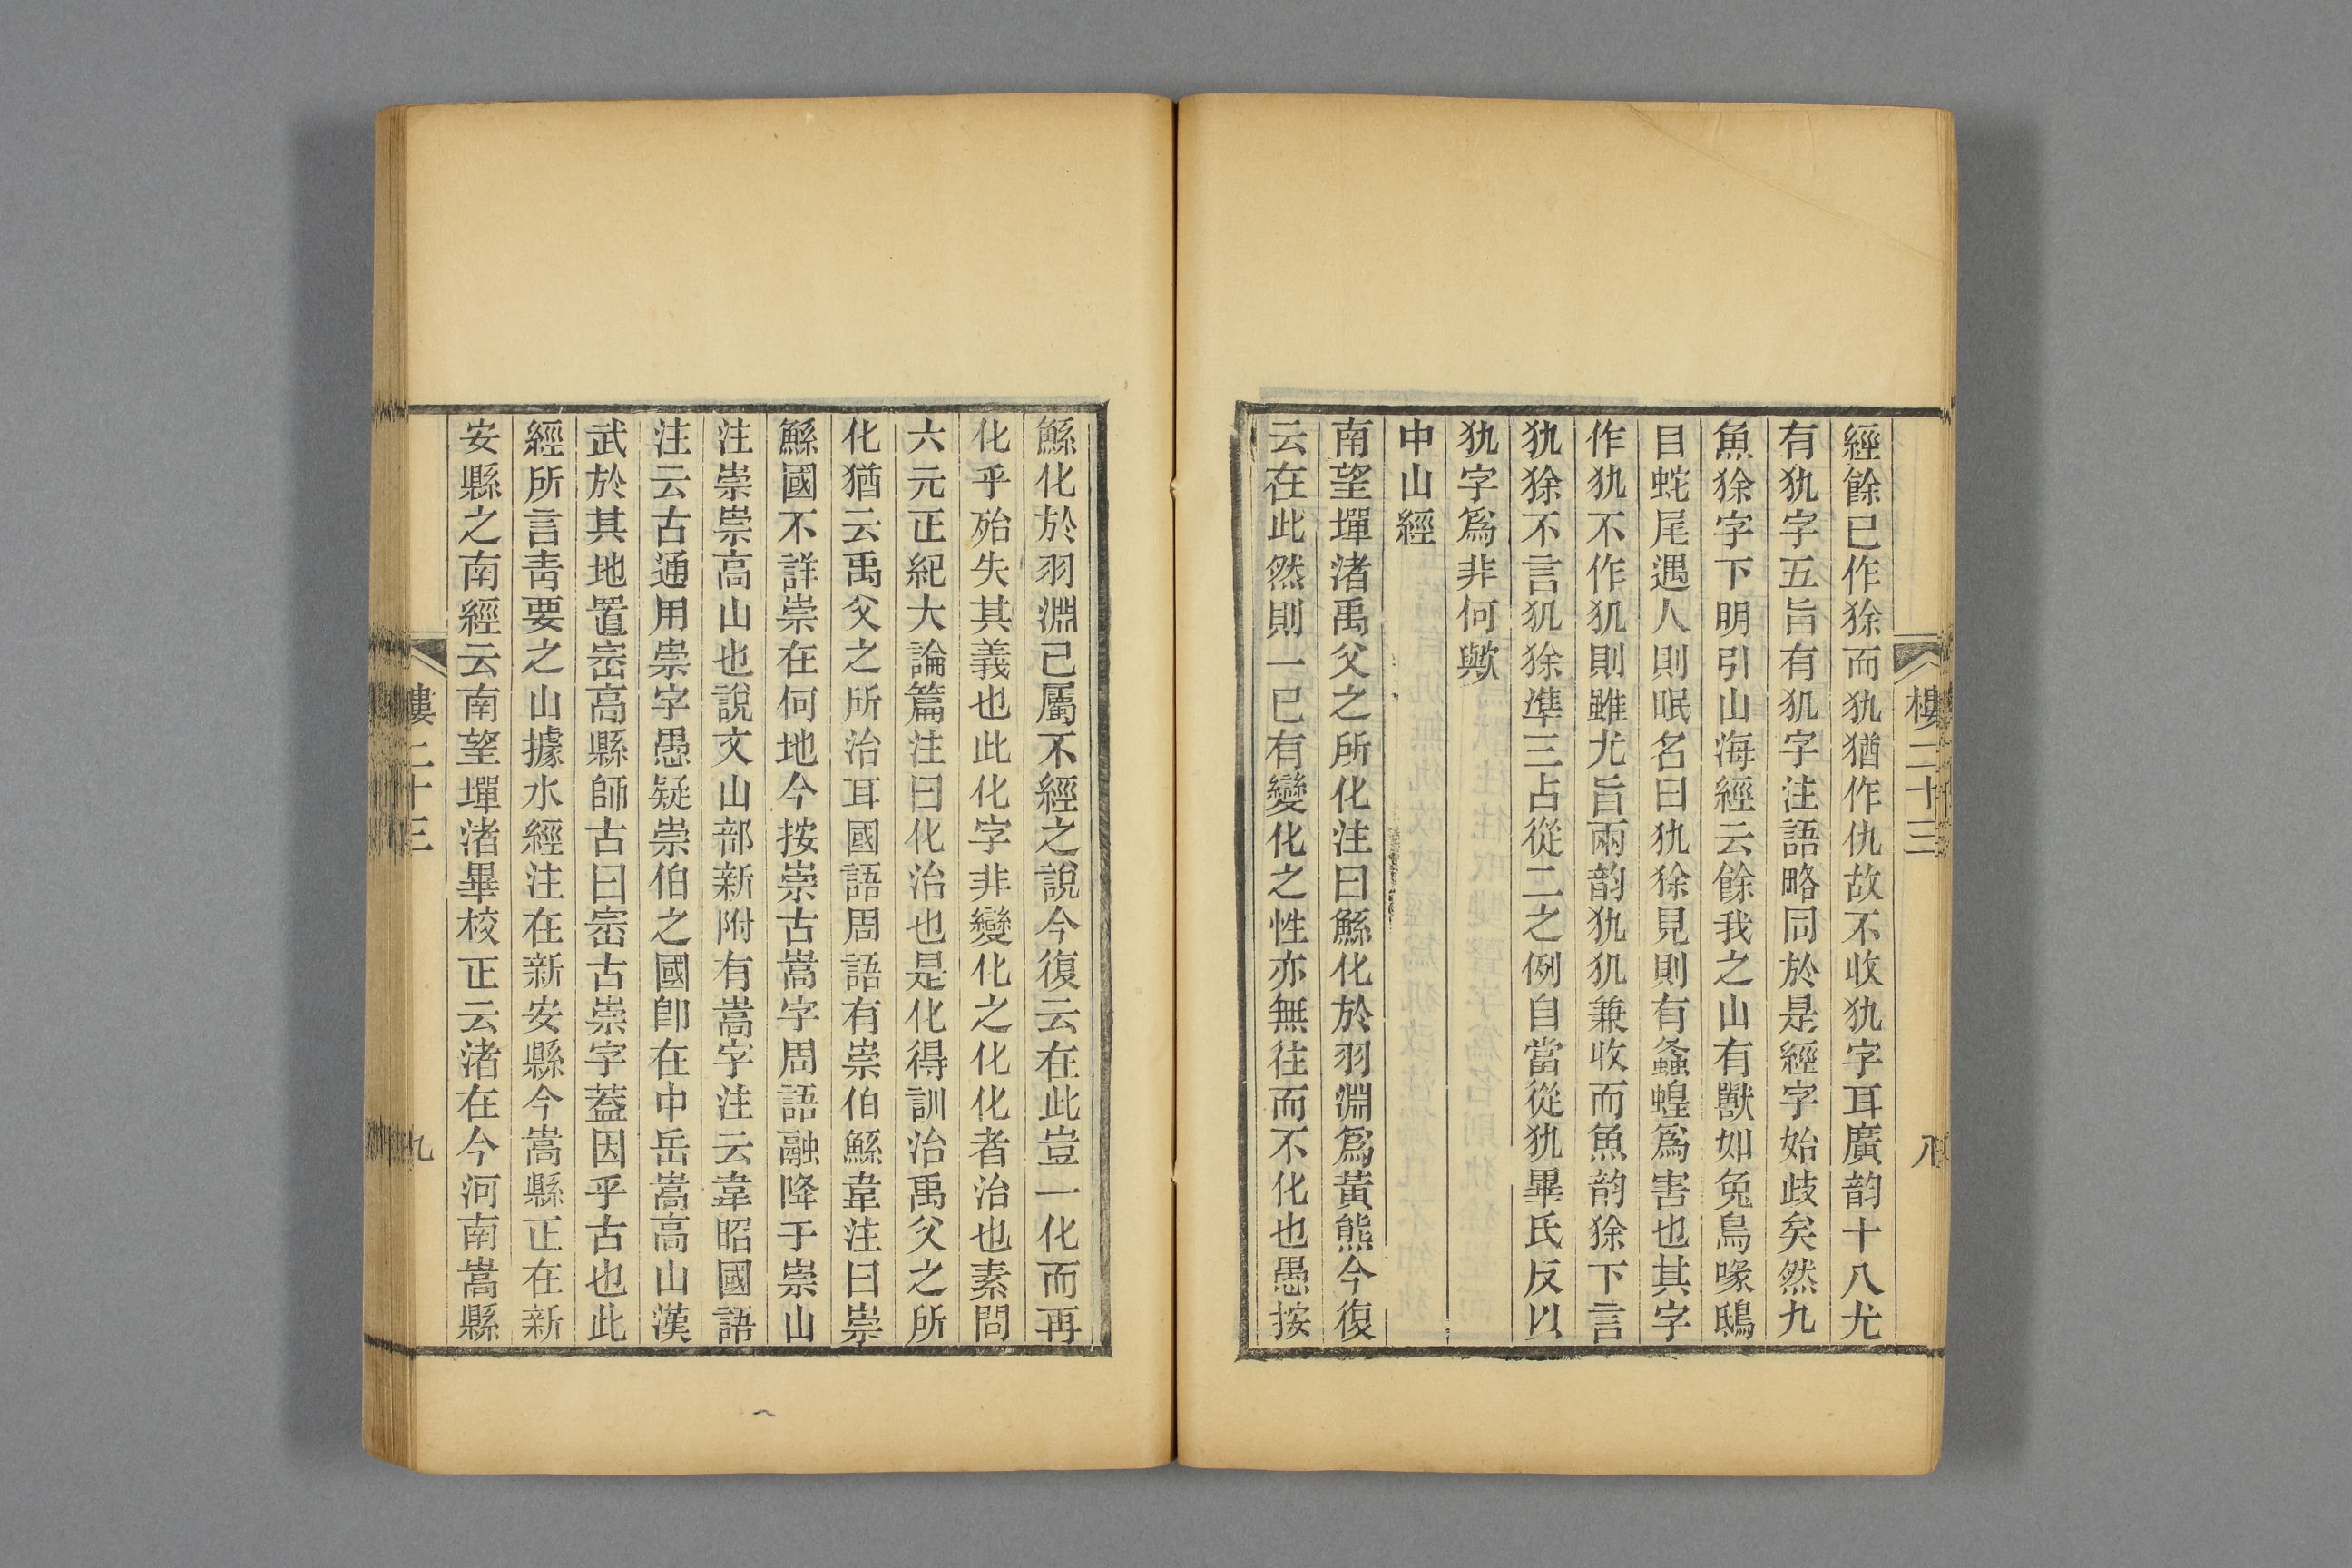 樓二十三
八
經餘已作狳而犰猶作仇故不收犰字耳廣韵十八尤
有犰字五旨有犱字注語略同於是經字始歧矣然九
魚狳字下明引山海經云餘我之山有獸如兔鳥喙鴟
目蛇尾遇人則眠名曰犰狳見則有螽蝗爲害也其字
作犰不作犱則雖尤旨兩韵犰犱兼收而魚韵狳下言
犰狳不言犱狳準三占從二之例自當從犰畢氏反以
犰字爲非何歟
中山經
南望墠渚禹父之所化注曰鯀化於羽淵爲黃熊今復
云在此然則一已有變化之性亦無往而不化也愚按
鯀化於羽淵已屬不經之說今復云在此豈一化而再
化乎殆失其義也此化字非變化之化化者治也素問
六元正紀大論篇注曰化治也是化得訓治禹父之所
化猶云禹父之所治耳國語周語有崇伯鯀韋注曰崇
鯀國不詳崇在何地今按崇古嵩字周語融降于崇山
注崇崇高山也說文山部新附有嵩字注云韋昭國語
注云古通用崇字愚疑崇伯之國卽在中岳嵩高山漢
武於其地置崈高縣師古曰崈古崇字葢因乎古也此
經所言靑要之山據水經注在新安縣今嵩縣正在新
安縣之南經云南望墠渚畢校正云渚在今河南嵩縣
樓二十三
九